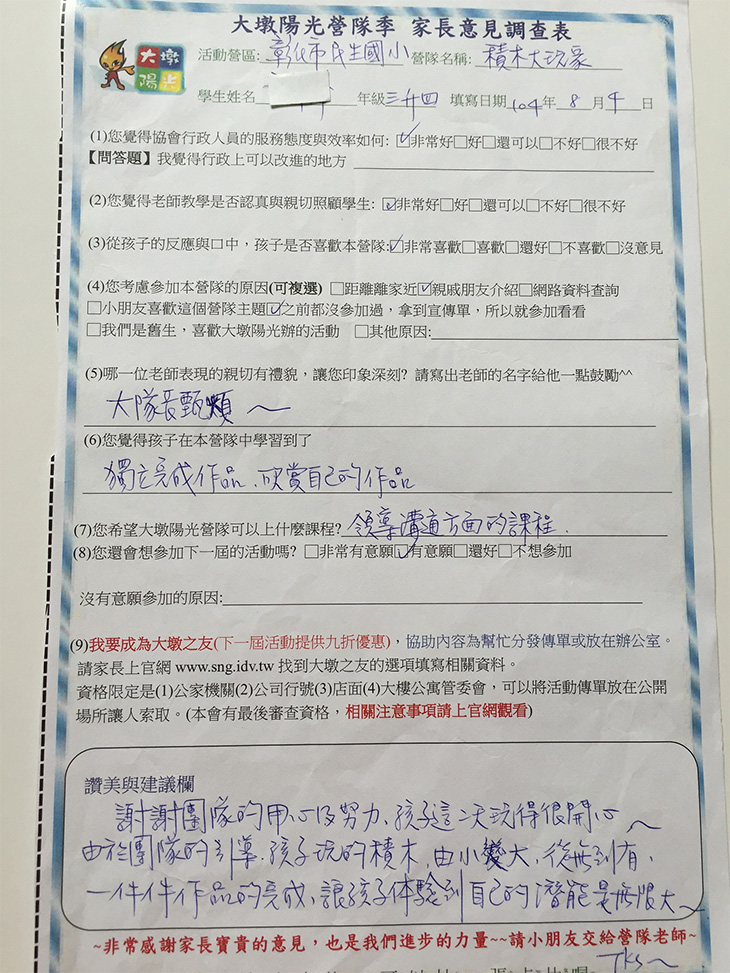 大墩陽光營隊季 家長意見調查表
大墩
陽光
活動營區:彰化市民生國小 營隊名稱: 積木大玩家
學生姓名 年級 三升四 填寫日期 104年 8 月 4 日
(1)您覺得協會行政人員的服務態度與效率如何: ☑非常好□好□還可以□不好□很不好
【問答題】我覺得行政上可以改進的地方
(2)您覺得老師教學是否認真與親切照顧學生: ☑非常好□好□還可以□不好□很不好
(3)從孩子的反應與口中，孩子是否喜歡本營隊:☑非常喜歡□喜歡□還好□不喜歡□沒意見
(4)您考慮參加本營隊的原因(可複選) □距離離家近☑親戚朋友介紹□網路資料查詢
□小朋友喜歡這個營隊主題☑之前都沒參加過，拿到宣傳單，所以就參加看看
□我們是舊生，喜歡大墩陽光辦的活動 □其他原因:
(5)哪一位老師表現的親切有禮貌，讓您印象深刻? 請寫出老師的名字給他一點鼓勵^^
大隊長甄 ~
(6)您覺得孩子在本營隊中學習到了
獨立完成作品、欣賞自己的作品
(7)您希望大墩陽光營隊可以上什麼課程? 領導溝通方面的課程.
(8)您還會想參加下一屆的活動嗎? □非常有意願☑有意願□還好□不想參加
沒有意願參加的原因:
(9)我要成為大墩之友(下一屆活動提供九折優惠)，協助內容為幫忙分發傳單或放在辦公室。
請家長上官網 www.sng.idv.tw 找到大墩之友的選項填寫相關資料。
資格限定是(1)公家機關(2)公司行號(3)店面(4)大樓公寓管委會，可以將活動傳單放在公開
場所讓人索取。(本會有最後審查資格，相關注意事項請上官網觀看)
讚美與建議欄
謝謝團隊的用心及努力、孩子這次玩得很開心~
由於團隊的引導、孩子玩的積木、由小變大、從無到有、
一件件作品的完成、讓孩子體驗到自己的潛能是無限大~
~非常感謝家長寶貴的意見，也是我們進步的力量~~請小朋友交給營隊老師~
TKS~